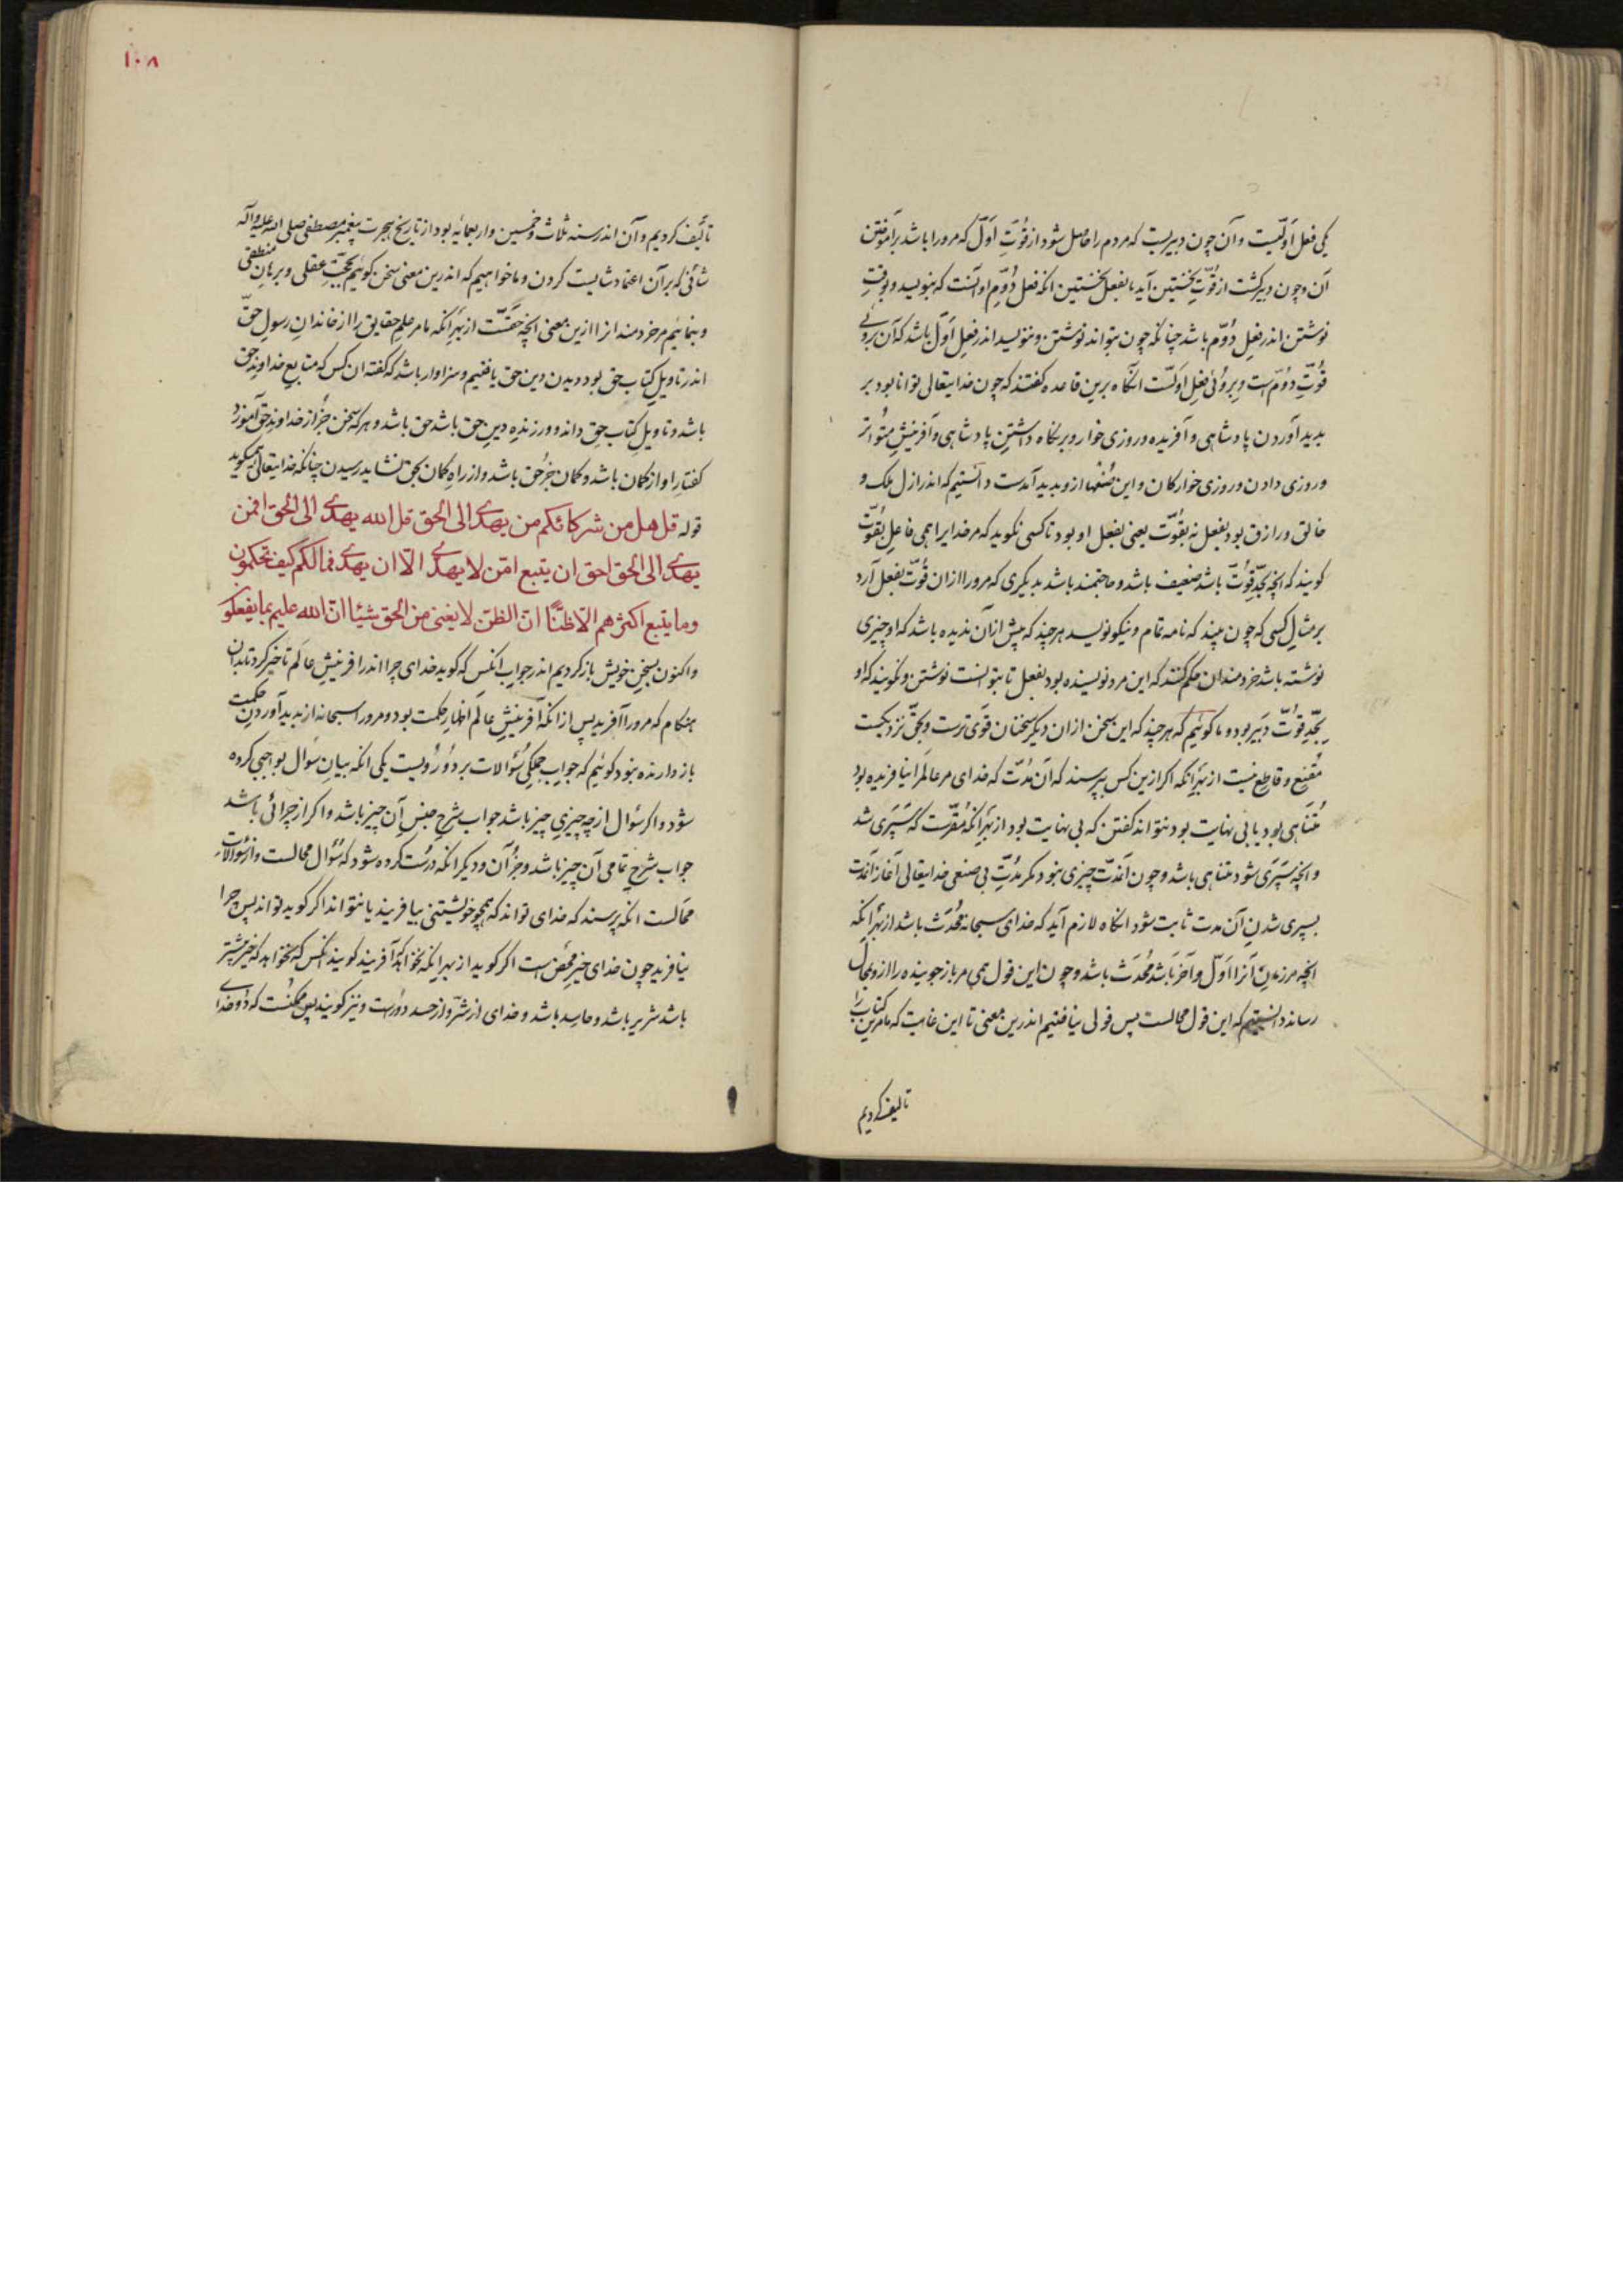 یکی فعل اوّلیست و آن چون دبیریست که مردم را حاصل شود از قوّتِ اوّل که مرورا باشد بر آموختن
آن و چون دبیر گشت از قوّتِ نخستین آید بفعل نخستین انکه فعل دُوُم او آنست که بنویسد و بوقتِ
نوشتن اندر فعلِ دُوُم باشد چنانکه چون بتواند نوشتن و ننویسد اندر فعلِ اوّل باشد که آن بروئی
قوّتِ دوُم است و بروئی فعلِ اوّلست انگاه برین قاعده گفتند که چون خدایتعالی توانا بود بر
پدید آوردن پادشاهی و آفریده و روزی خوار و بر نگاه داشتن پادشاهی و آفرینشِ متواتر
و روزی دادن روزی خوارگان و این صُنْعها ازو پدید آمدست دانستیم که اندر ازل ملک و
خالق و رازق بود بفعل نه بقوّت یعنی بفعل او بود تا کسی نگوید که مر خدایرا همی فاعلِ بقوّت
گویند که انچه بحدِّ قوّت باشد ضعیف باشد و حاجتمند باشد بدیگری که مرورا ازان قوّت بفعل آرد
بر مثالِ کسی که چون بیند که نامه تمام و نیکو نویسد هر چند که پیش از آن ندیده باشد که او چیزی
نوشته باشد خردمندان حکم کنند که این مرد نویسنده بود بفعل تا بتوانست نوشتن و نگویند که او
بحدِّ قوّت دبیر بود و ما گوئیم که هر چند که این سخن ازان دیگر سخنان قوی ترست و بحقّ نزدیکست
مُقنِع و قاطع نیست از بهر انکه اگر ازین کس بپرسند که آن مُدّت که خدای مر عالم را نیافریده بود
مُتناهی بود یا بی نهایت بود نتواند گفتن که بی نهایت بود از بهر انکه مُقرّست که سَپَری شد
و انچه سَپَری شود متناهی باشد و چون آنمدّت چیزی نبود مگر مدّتِ بی صنعی خدایتعالی آغاز آنمدّت
بسپری شدنِ آن مدت ثابت شود انگاه لازم آید که خدای سبحانه مُحْدَث باشد از بهر انکه
انچه مر زمانِ آنرا اوّل و آخر باشد مُحْدَث باشد و چون این قول همی مر باز جوینده را ازو بمحال
رساند دانستیم که این قول محالست پس قولی نیافتیم اندرین معنی تا این غایت که ما مر این کتاب را
تألیف کردیم
۱۰۸
تألیف کردیم و آن اندر سنه ثلاث و خمسین و اربعمایه بود از تاریخ هجرت پیغمبر مصطفی صلی الله علیه و آله
شافی که بر آن اعتماد شایست کردن و ما خواهیم که اندرین معنی سخن گوئیم بحجّتِ عقلی و برهانِ منطقی
و بنمائیم مر خردمند انرا ازین معنی انچه حقّست از بهر انکه ما مر علمِ حقایق را از خاندانِ رسولِ حقّ
اندر تاویلِ کتابِ حق بود و بدان دین حق یافتیم و سزاوار باشد که گفته ان کس که متابع خداوندِ حق
باشد و تاویلِ کتابِ حق داند و ورزنده دینِ حق باشد حق باشد و هر که سخن جز از خداوندِ حق آموزد
گفتار او از گمان باشد و گمان جز حق باشد و از راهِ گمان بحق نشاید رسیدن چنانکه خدایتعالی همیگوید
قوله قل هل من شرکائکم من یهدی الی الحق قل الله یهدی الی الحق افمن
یهدی الی الحق احق ان یتبع امّن لا یهدّی الّا ان یهدی فما لکم کیف تحکمون
وما یتبع اکثرهم الّا ظنًّا انّ الظنّ لا یغنی من الحق شیئا انّ الله علیم بما یفعلون
و اکنون بسخنِ خویش باز گردیم اندر جوابِ انکس که گوید خدای چرا اندر افرینشِ عالم تاخیر کرد تا بدان
هنگام که مرورا آفرید پس از انکه آفرینشِ عالم اظهارِ حکمت بود و مرورا سبحانه از پدید آوردنِ حکمت
باز دارنده نبود گوئیم که جوابِ جملگی سُؤالات بر دو رُویست یکی انکه بیانِ سوال بواجبی کرده
شود و اگر سُؤال از چه چیزیِ چیز باشد جواب شرحِ جنسِ آن چیز باشد و اگر از چرائی باشد
جواب شرحِ تمامی آن چیز باشد و جزُ آن و دیگر انکه درُست کرده شود که سُؤال محالست و از سُؤالاتِ
محالست انکه پرسند که خدای تواند که همچو خویشتنی بیافریند یا نتواند اگر گوید تواند پس چرا
نیافرید چون خدای خیرِ مَحْض است اگر گوید از بهر انکه نخواهد آفریند گویند انکس که نخواهد که خیر بیشتر
باشد شریر باشد و حاسد باشد و خدای از شرّ و از حسد دورست و نیز گویند پس ممکنست که دو خدای